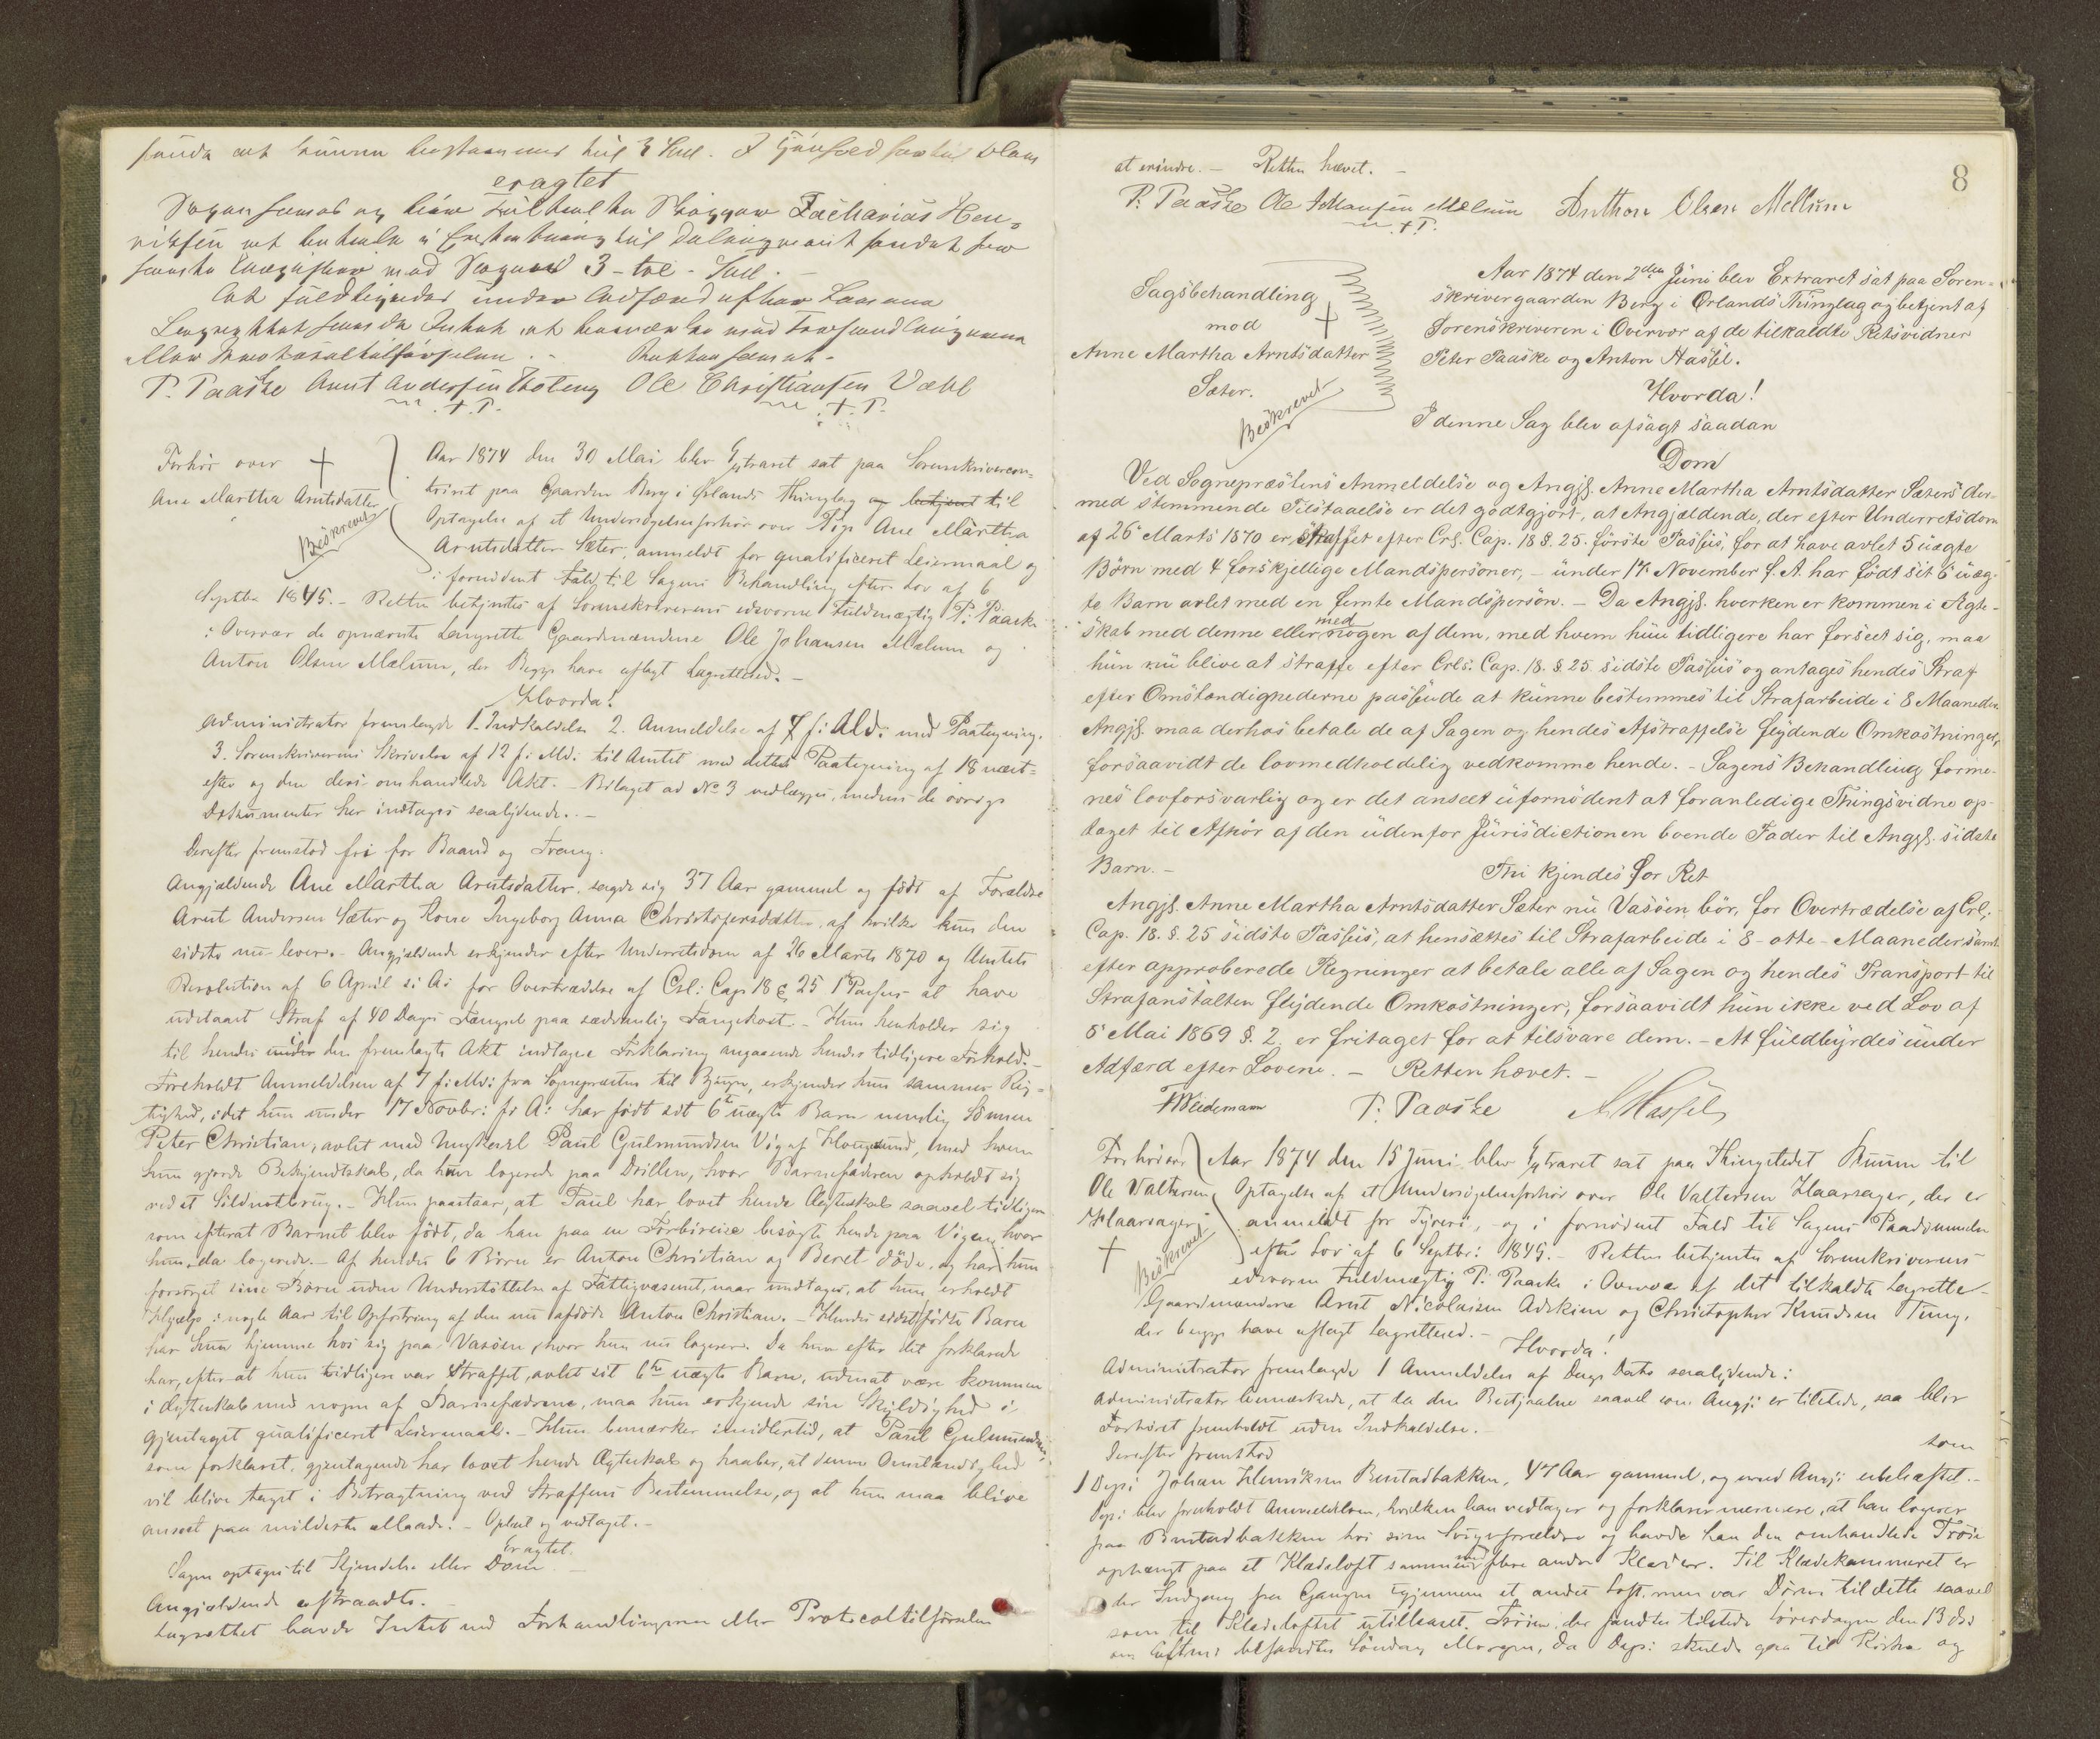 eragtet
Zacharias Hen-
riksen
3-tre-
P. Paaske Arnt Andersen Ole Christiansen
m.f.P. m.f.P.
Forhör over
Ane Martha Arntsdatter
Beskrevet
Aar 1874 den 30 Mai blev Extraret sat paa Sorenskrivercon-
toiret paa Gaarden Berg i Ørlands Thinglag og betjent til
Optagelse af et Undersøgelsesforhör over Pige Ane Martha
Arntsdatter Sæter, anmeldt for qualificeret Leiermaal og
i fornödent Fald til Sagens Behandling efter Lov af 6
Septbr 1845. – Retten betjentes af Sorenskriverens edsvorne Fuldmægtig P. Paaske
i Overvær de opnævnte Lagrette Gaardmændene Ole Johansen Mælum og
Anton Olsen Mælum, der Begge have aflagt Lagretteed. –
Hvorda!
Administrator fremlagde 1. Indkaldelse 2. Anmeldelse af 7 f. Md. med Paategning.
3. Sorenskriverens Skrivelse af 12 f. Md. til Amtet med dettes Paategning af 18 næst-
efter og den deri omhandlede Akt. – Bilaget ad No 3 vedlægges, medens de övrige
Dokumenter her indtages saalydende. –
Derefter fremstod fri for Baand og Tvang.
Angjældende Ane Martha Arntsdatter. sagde sig 37 Aar gammel og född af Forældre
Arnt Andersen Sæter og Kone Ingeborg Anna Christofersdatter, af hvilke kun den
sidste nu lever. – Angjældende erkjender efter Underretsdom af 26 Marts 1870 og Amtets
Resolution af 6 April s: A: for Overtrædelse af Crl: Cap 18 § 25 1ste Passus at have
udstaaet Straf af 40 Dages Fængsel paa sædvanlig Fangekost. – Hun henholder sig
til hendes under den fremlagte Akt indtagne Forklaring angaaende hendes tidligere Forhold. –
Foreholdt Anmeldelsen af 7 f: Md: fra Sognepræsten til Bjugn, erkjender hun sammes Rig-
tighed, idet hun under 17 Novbr: f: A: har född sit 6te uægte Barn nemlig Sönnen
Peter Christian, avlet med Ungkarl Paul Gulmundsen Vig af Hvægsund, med hvem
hun gjorde Bekjendtskab, da hun logerede paa Dvillen, hvor Barnefaderen opholdt sig
ved et Sildnotbrug. – Hun paastaar, at Paul har lovet hende Ægteskab saavel tidligere
som efterat Barnet blev född, da han paa en Forbireise besögte hende paa Vigen, hvor
hun da logerede. – Af hendes 6 Börn er Anton Christian og Beret döde, og har hun
forsörget sine Börn uden Understöttelse af Fattigvæsenet, naar undtages, at hun erholdt
Hjælp i nogle Aar til Opfostring af den nu afdöde Anton Christian. – Hendes sidstfödte Barn
har hun hjemme hos sig paa Vasöen, hvor hun nu logerer. Da hun efter det forklarede
har, efter at hun tidligere var Straffet, avlet sit 6te uægte Barn, uden at være kommen
i Ægteskab med nogen af Barnefædrene, maa hun erkjende sin Skyldighed i
gjentaget qualificeret Leiermaal. – Hun bemærker imidlertid, at Paul Gulmundsen,
som forklaret, gjentagende har lovet hende Ægteskab og haaber, at denne Omstændighed
vil blive taget i Betragtning ved Straffens Bestemmelse, og at hun maa blive
anseet paa mildeste Maade. – Oplæst og vedtaget. –
Eragtet.
Sagen optages til Kjendelse eller Dom –
Angjældende aftraadte. –
Lagrettet havde Intet ved Forhandlingerne eller Protocoltilförselen
8
at erindre. – Retten hævet. –
P. Paaske Ole Johansen Mælum Anthon Olsen Mellum
m.f.P.
Sagsbehandling
mod
Anne Martha Arntsdatter
Sæter.
Beskrevet
Aar 1874 den 2den Juni blev Extraret sat paa Soren-
skrivergaarden Berg i Ørlands Thinglag og betjent af
Sorenskriveren i Overvær af de tilkaldte Retsvidner
Peter Paaske og Anton Hassel.
Hvorda!
I denne Sag blev afsagt saadan
Dom
Ved Sognepræstens Anmeldelse og Angjs. Anne Martha Arntsdatter Sæters der-
med stemmende Tilstaaelse er det godtgjort, at Angjældende, der efter Underretsdom
af 26 Marts 1870 er straffet efter Crl. Cap. 18 §. 25. förste Passus, for at have avlet 5 uægte
Börn med 4 forskjellige Mandspersoner, – under 17. November f. A. har född sit 6 uæg-
te Barn avlet med en femte Mandsperson. – Da Angjs. hverken er kommen i Ægte-
skab med denne eller med nogen af dem, med hvem hun tidligere har forseet sig, maa
hun nu blive at straffe efter Crls. Cap. 18. §. 25 sidste Passus og antages hendes Straf
efter Omstændighederne passende at kunne bestemmes til Strafarbeide i 8 Maaneder
Angjs. maa derhos betale de af Sagen og hendes Afstraffelse flydende Omkostninger,
forsaavidt de lovmedholdelig vedkomme hende. – Sagens Behandling forme-
nes lovforsvarlig og er det anseet ufornödent at foranledige Thingsvidne op-
taget til Afhör af den udenfor Jurisdictionen boende Fader til Angjs. sidste
Barn. –
Thi kjendes for Ret
Angjs. Anne Martha Arntsdatter Sæter nu Vasöen, bör, for Overtrædelse af Crl.
Cap. 18. §. 25 sidste Passus, at hensættes til Strafarbeide i 8 – otte – Maaneder samt
efter approberede Regninger at betale alle af Sagen og hendes Transport til
Strafanstalten flydende Omkostninger, forsaavidt hun ikke ved Lov af
5 Mai 1869 §. 2. er fritaget for at tilsvare dem. – At fuldbyrdes under
Adfærd efter Lovene. – Retten hævet. –
FWeidemann P. Paaske A Hassel
Forhör over
Ole Valtersen
Haarsager
Beskrevet
Aar 1874 den 15 Juni blev Extraret sat paa Thingstedet til
Optagelse af et Undersøgelsesforhör over Ole Valtersen Haarsager, der er
anmeldt for Tyveri, – og i fornödent Fald til Sagens Paadömmelse
efter Lov af 6 Septbr: 1845. – Retten betjentes af Sorenskriverens
edsvorne Fuldmægtig P. Paaske i Overvær af det tilkaldte Lagrette –
Gaardmændene Arnt Nicolaisen og Christopher Knudsen
der begge have aflagt Lagretteed. –
Hvorda!
Administrator fremlagde 1 Anmeldelse af Dags Dato saalydende:
Administrator bemærkede, at da den Bestjaalne saavel som Angj: er tilstede, saa blev
Forhöret fremholdt uden Indkaldelse. –
Derefter fremstod som
1 Dep: Johan Henriksen 47 Aar gammel, og med Angj: ubeslægtet. –
Dep: blev foreholdt Anmeldelsen, hvilken han vedtager og forklarer nærmere, at han logerer
paa hos sine Svigerforældre og havde han den omhandlede Tröie
ophængt paa et Klædeloft sammen med flere andre Klæder. Til Klædekammeret er
der Indgang fra Gangen gjennem et andet Loft, men var Dören til dette saavel
som til Klædeloftet utillaaset. Tröien, der fandtes tilstede Löverdagen den 13 ds:
om Aftenen Söndag Morgen, da Dep: skulde gaa til Kirke og